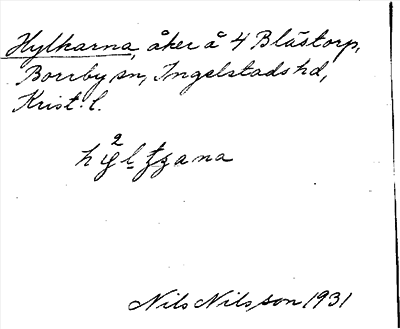 Hylkarna, åker å 4 Blåstorp,
Borrby sn, Ingelstads hd,
Krist. l.
Nils Nilsson 1931